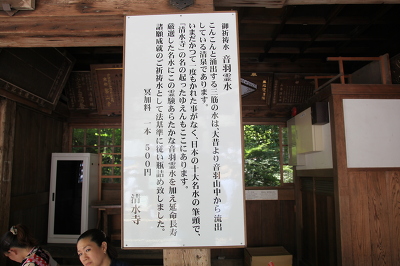 御祈祷水 音羽霊水
こんこんと涌出する三筋の水は、大昔より音羽山中から流出
している清泉であります。
いまだかつて一度もかれた事がなく、日本の十大名水の筆頭で、
「清水寺」の名の起ったゆえんもここにあります。
厳選した名水にこの霊験あらたかな音羽霊水を加え延命長寿
諸願成就のご祈祷水として法基準に従い瓶詰め致しました。
冥加料 一本 五〇〇円
清水寺